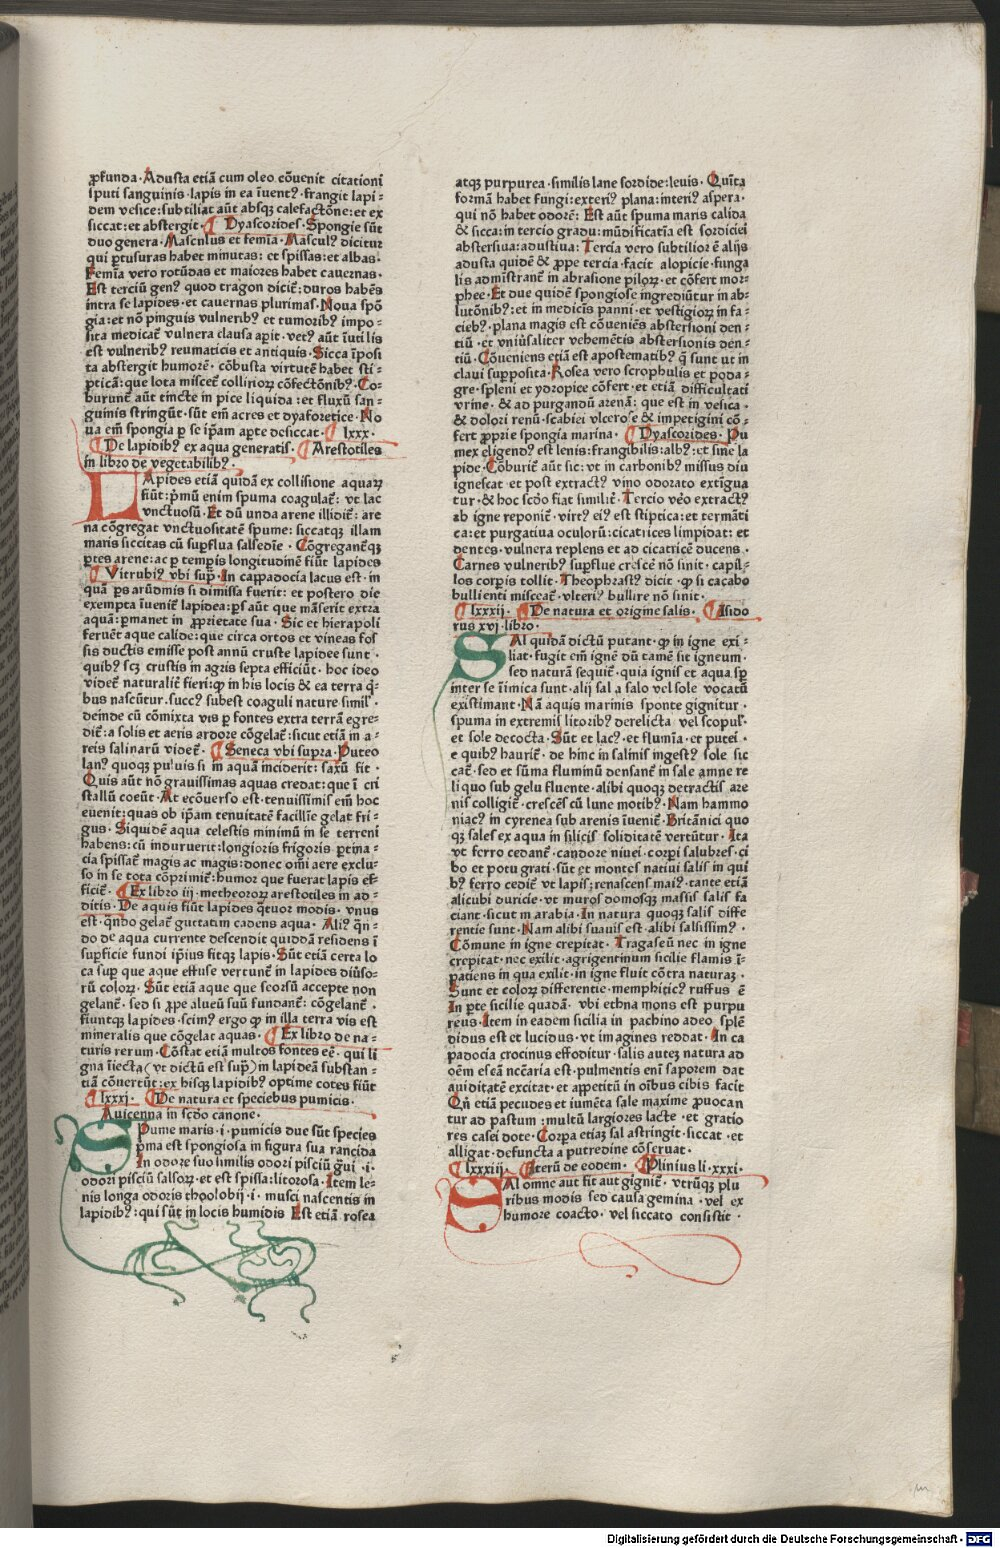 ꝓfunda · Adusta etiã cum oleo cõuenit citationi
sputi sanguinis · lapis in ea ĩuentꝰ · frangit lapi-
dem vesice : subtiliat aũt absqꝫ calefactõne : et ex
siccat : et abstergit · ¶ Dyascorides · Spongie sũt
duo genera · Masculus et femĩa · Masculꝰ dicitur
qui ꝑtusuras habet minutas : et spissas : et albas ·
Femĩa vero rotũdas et maiores habet cauernas ·
Est terciũ genꝰ quod tragon dicit̃ : duros habẽs
intra se lapides · et cauernas plurimas · Noua spõ
gia : et nõ pinguis vulneribꝰ et tumoribꝰ impo-
sita medicat̃ vulnera clausa aꝑit · vetꝰ aũt ĩutilis
est vulneribꝰ reumaticis et antiquis · Sicca ĩposi
ta abstergit humorẽ · cõbusta virtutẽ habet sti-
pticã : que lota miscet̃ colliriorꝝ cõfectõnibꝰ · Co-
burunt̃ aũt tincte in pice liquida : et fluxũ san-
guinis stringũt · sũt em̃ acres et dyaforetice · No
ua em̃ spongia ꝑ se ip̃am aꝑte desiccat · ¶ lxxx ·
¶ De lapidibꝰ ex aqua generatis · ¶ Arestotiles
in libro de vegetabilibꝰ ·
LApides etiã quidã ex collisione aquarꝝ
fiũt : pᵐũ enim spuma coagulat̃ : vt lac
vnctuosũ · Et dũ vnda arene illidit̃ : are
na cõgregat vnctuositatẽ spume : siccatqꝫ illam
maris siccitas cũ suꝑflua salsedĩe · Cõgregant̃qꝫ
ꝑtes arene : ac ꝑ temꝑis longitudinẽ fiũt lapides
¶ Vitrubiꝰ vbi suꝑ · In cappadocia lacus est · in
quã ꝑs arũdinis si dimissa fuerit : et postero die
exempta ĩuenit̃ lapidea : ꝑs aũt que mãserit extra
aquã : ꝑmanet in ꝓprietate sua · Sic et hierapoli
feruẽt aque calide : que circa ortos et vineas fos
sis ductis emisse post annũ cruste lapidee sunt ·
quibꝰ scꝫ crustis in agris septa efficiũt · hoc ideo
videt̃ naturalit̃ fieri : ꝙ in his locis & ea terra q̃-
bus nascũtur · succꝰ subest coaguli nature simil̓ ·
deinde cũ cõmixta vis ꝑ fontes extra terrã egre-
dit̃ : a solis et aeris ardore cõgelat̃ : sicut etiã in a-
reis salinarũ videt̃ · ¶ Seneca vbi supra · Puteo
lanꝰ quoqꝫ puluis si in aquã inciderit : saxũ fit ·
Quis aũt nõ grauissimas aquas credat : que ĩ cri
stallũ coeũt · At ecõuerso est · tenuissimis em̃ hoc
euenit : quas ob ip̃am tenuitatẽ facillĩe gelat fri-
gus · Siquidẽ aqua celestis minimũ in se terreni
habens : cũ induruerit : longioris frigoris ꝑtina-
cia spissat̃ magis ac magis : donec om̃i aere exclu-
so in se tota cõprimit̃ : humor que fuerat lapis ef-
ficit̃ · ¶ Ex libro iij · metheororꝝ arestotiles in ad-
ditis · De aquis fiũt lapides q̃tuor modis · vnus
est · qñdo gelat̃ guttatim cadens aqua · Aliꝰ q̃n-
do de aqua currente descendit quiddã residens ĩ
suꝑficie fundi ip̃ius fitqꝫ lapis · Sũt etiã certa lo
ca suꝑ que aque effuse vertunt̃ in lapides diũso-
rũ colorꝝ · Sũt etiã aque que seorsũ accepte non
gelant̃ · sed si ꝓpe alueũ suũ fundant̃ : cõgelant̃ ·
fiuntqꝫ lapides · scimꝰ ergo ꝙ in illa terra vis est
mineralis que cõgelat aquas · ¶ Ex libro de na-
turis rerum · Cõstat etiã multos fontes eẽ · qui li
gna ĩiecta (vt dictũ est suꝑ) in lapideã substan-
tiã cõuertũt : ex hisqꝫ lapidibꝰ optime cotes fiũt
¶ lxxxj · ¶ De natura et speciebus pumicis ·
Auicenna in scdo canone ·
SPume maris · i · pumicis due sũt species
pᵐa est spongiosa in figura sua rancida
In odore suo similis odori pisciũ g̃ui · i ·
odori pisciũ salsorꝝ · et est spissa : litorosa · Item le-
nis longa odoris tholobij · i · musci nascentis in
lapidibꝰ : qui sũt in locis humidis Est etiã rosea
atqꝫ purpurea · similis lane sordide : leuis · Quĩta
formã habet fungi : exteriꝰ plana : interiꝰ aspera ·
qui nõ habet odorẽ : Est aũt spuma maris calida
& sicca : in tercio gradu : mũdificatĩa est sordiciei
abstersiua : adustiua : Tercia vero subtilior ẽ alijs
adusta quidẽ & ꝓpe tercia · facit alopicie · funga
lis admĩstrant̃ in abrasione pilorꝝ · et cõfert mor-
phee · Et due quidẽ spongiose ingrediũtur in ab-
lutõnibꝰ : et in medicĩs panni · et vestigiorꝝ in fa-
ciebꝰ · plana magis est cõueniẽs abstersioni den-
tiũ · et vniũsaliter vehemẽtis abstersionis den-
tiũ · Cõueniens etiã est apostematibꝰ q̃ sunt vt in
claui suꝑposita · Rosea vero scrophulis et poda-
gre · spleni et ydropice cõfert · et etiã difficultati
vrine · & ad purgandũ arenã : que est in vesica ·
& dolori renũ · scabiei vlcerose & impetigini cõ-
fert ꝓprie spongia marina · ¶ Dyascorides · Pu
mex eligendꝰ est lenis : frangibilis : albꝰ : et sine la
pide · Cõburit̃ aũt sic : vt in carbonibꝰ missus diu
ignescat · et post extractꝰ vino odorato extigua
tur · & hoc scdo fiat similit̃ · Tercio veo extractꝰ
ab igne reponit̃ · virtꝰ eiꝰ est stiptica : et termãti
ca : et purgatiua oculorũ : cicatrices limpidat : et
dentes · vulnera replens et ad cicatricẽ ducens ·
Carnes vulneribꝰ suꝑflue crescẽ nõ sinit · capil-
los corꝑis tollit · Theophrastꝰ dicit · ꝙ si cacabo
bullienti misceat̃ · vlteriꝰ bullire nõ sinit ·
¶ lxxxij · ¶ De natura et origine salis · ¶ Isido
rus xvj · libro ·
SAl quidã dictũ putant · ꝙ in igne exi-
liat · fugit em̃ ignẽ dũ tamẽ sit igneum ·
sed naturã sequit̃ · quia ignis et aqua sꝑ
inter se ĩimica sunt · alij sal a salo vel sole vocatũ
existimant · Nã aquis marinis sponte gignitur ·
spuma in extremis litoribꝰ derelicta vel scopul̓ ·
et sole decocta · Sũt et lacꝰ · et flumĩa · et putei ·
e quibꝰ haurit̃ · de hinc in salinis ingestꝰ sole sic
cat̃ · sed et sũma fluminũ densant̃ in sale amne re
liquo sub gelu fluente · alibi quoqꝫ detractis are
nis colligit̃ · crescẽs cũ lune motibꝰ · Nam hammo
niacꝰ in cyrenea sub arenis ĩuenit̃ · Britãnici quo
qꝫ sales ex aqua in silicis soliditatẽ vertũtur · Ita
vt ferro cedant̃ · candore niuei · corꝑi salubres · ci
bo et potu grati · sũt et montes natiui salis in qui
bꝰ ferro cedit̃ vt lapis ; renascens maiꝰ · tante etiã
alicubi duricie · vt muros domosqꝫ massis salis fa
ciant · sicut in arabia · In natura quoqꝫ salis diffe
rentie sunt · Nam alibi suauis est · alibi salsissimꝰ ·
Cõmune in igne crepitat · Tragaseũ nec in igne
crepitat · nec exilit · agrigentinum sicilie flamis ĩ-
patiens in qua exilit · in igne fluit cõtra naturaꝫ ·
Sunt et colorꝝ differentie · memphiticꝰ ruffus ẽ
In ꝑte sicilie quadã · vbi ethna mons est purpu
reus · Item in eadem sicilia in pachino adeo splẽ
didus est et lucidus · vt imagines reddat · In ca
padocia crocinus effoditur · salis auteꝫ natura ad
oẽm escã ncc̃aria est · pulmentis eni̇̃ saporem dat
auiditatẽ excitat · et appetitũ in oĩbus cibis facit
Qñ etiã pecudes et iumẽta sale maxime ꝓuocan
tur ad pastum : multũ largiores lacte · et gratio
res casei dote · Corꝑa etiaꝫ sal astringit · siccat · et
alligat · defuncta a putredine cõseruat ·
¶ lxxxiij · ¶ Iterũ de eodem · ¶ Plinius li · xxxi ·
SAl omne aut fit aut gignit̃ · vtrũqꝫ plu
ribus modis sed causa gemina · vel ex
humore coacto · vel siccato consistit ·
Digitalisierung gefördert durch die Deutsche Forschungsgemeinschaft · DFG